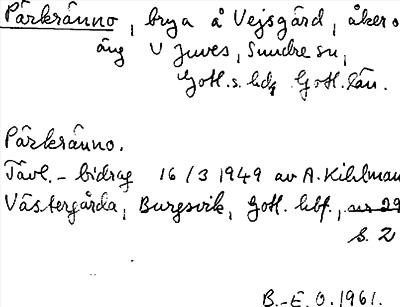 Pärkränno, brya å Vejsgård, åker o
äng V Juves, Sundre sn,
Gotl. s. hd, Gotl. län.
Pärkränno.
Tävl.-bidrag 16/3 1949 av A. Kihlman
Västergårda, Burgsvik, Gotl. hbf., nr 29
s. 2
B.-E. O. 1961.